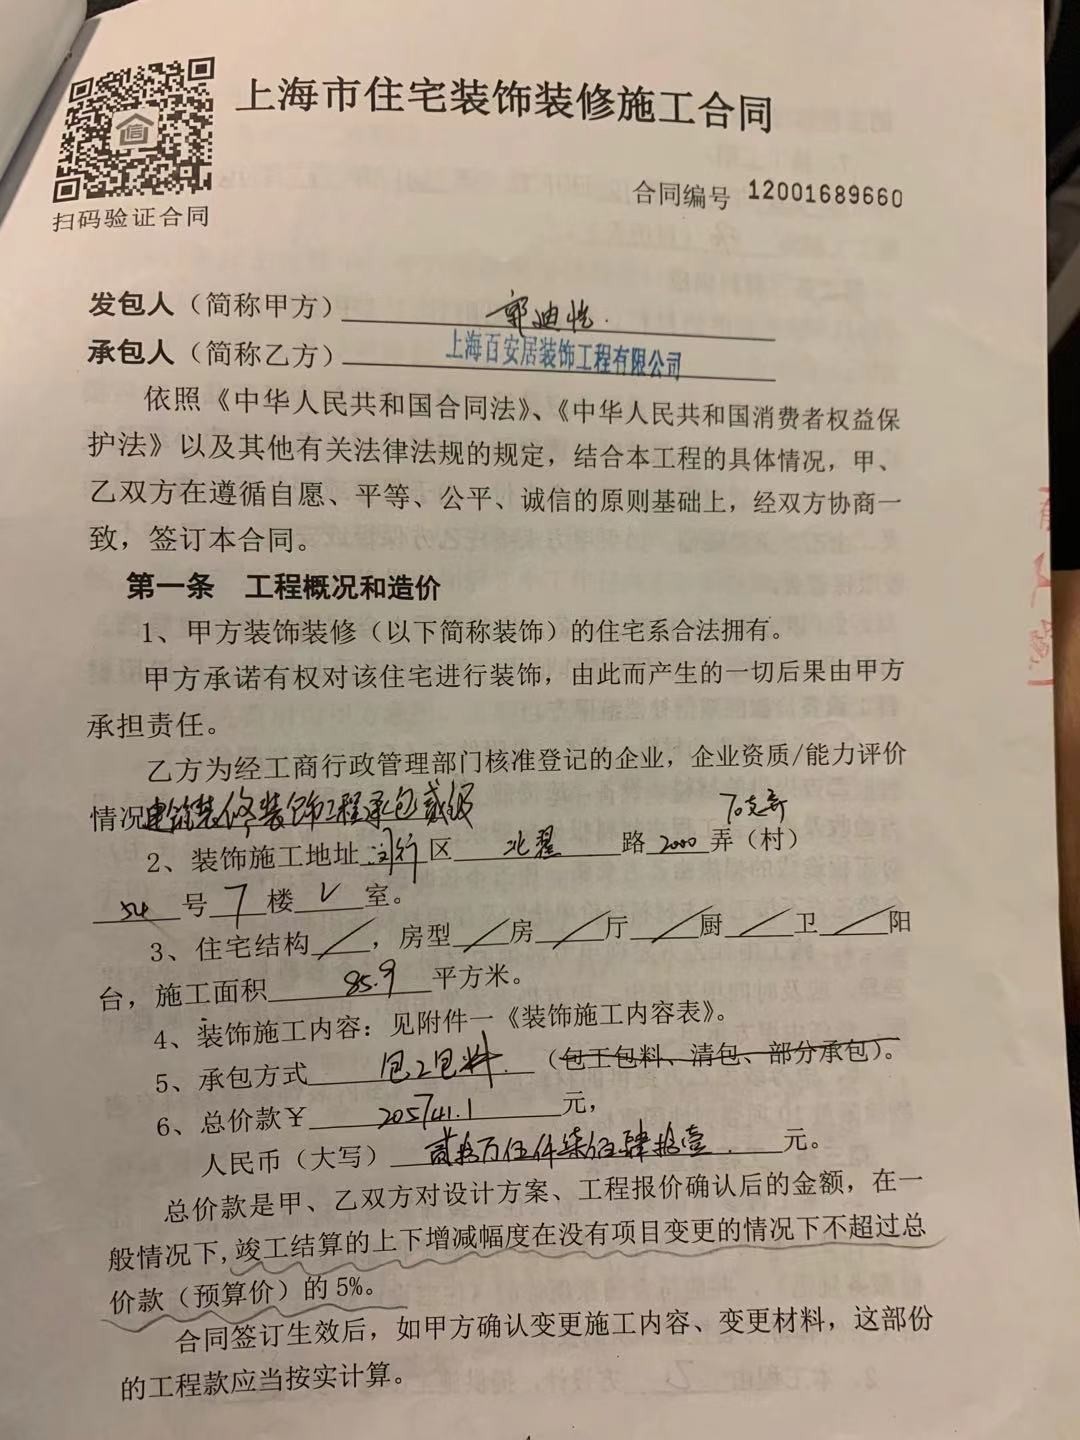 上海市住宅装饰装修施工合同
扫码验证合同
合同编号 12001689660
发包人（简称甲方）郭迪恺
承包人（简称乙方）上海百安居装饰工程有限公司
依照《中华人民共和国合同法》、《中华人民共和国消费者权益保
护法》以及其他有关法律法规的规定，结合本工程的具体情况，甲、
乙双方在遵循自愿、平等、公平、诚信的原则基础上，经双方协商一
致，签订本合同。
第一条 工程概况和造价
1、甲方装饰装修（以下简称装饰）的住宅系合法拥有。
甲方承诺有权对该住宅进行装饰，由此而产生的一切后果由甲方
承担责任。
乙方为经工商行政管理部门核准登记的企业，企业资质/能力评价
情况建筑装修装饰工程承包贰级
2、装饰施工地址闵行区北翟路2000弄（村）
54号7楼 室。
3、住宅结构／，房型／房／厅／厨／卫／阳
台，施工面积85.9平方米。
4、装饰施工内容：见附件一《装饰施工内容表》。
5、承包方式包工包料.（包工包料、清包、部分承包）。
6、总价款￥205741.1元，
人民币（大写）贰拾万伍仟柒佰肆拾壹.元。
总价款是甲、乙双方对设计方案、工程报价确认后的金额，在一
般情况下,竣工结算的上下增减幅度在没有项目变更的情况下不超过总
价款（预算价）的5%。
合同签订生效后，如甲方确认变更施工内容、变更材料，这部份
的工程款应当按实计算。